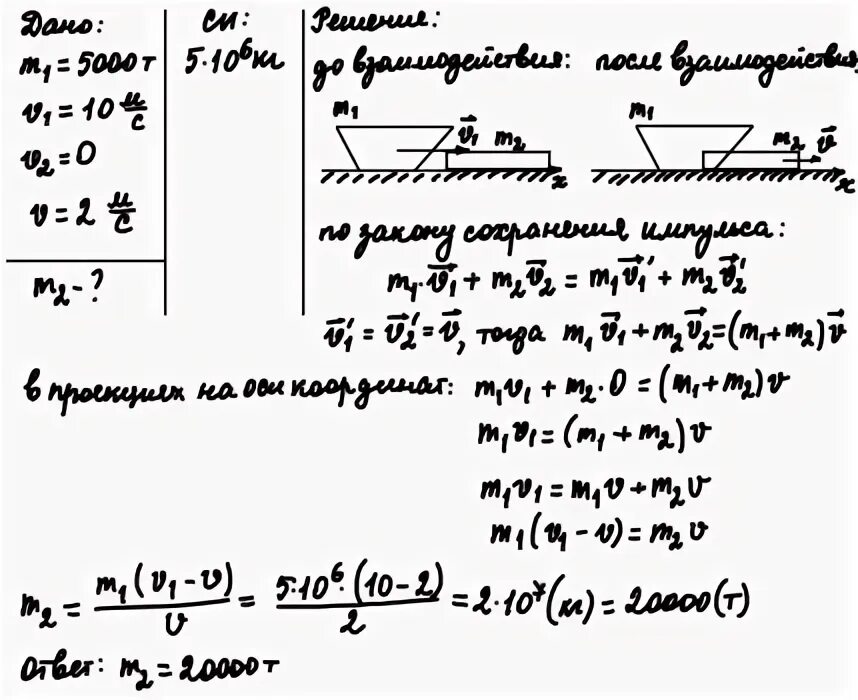 Дано:
m₁ = 5000 т
v₁ = 10 м/с
v₂ = 0
v = 2 м/с
m₂ - ?
СИ:
5·10⁶ кг
Решение:
до взаимодействия: после взаимодействия:
m₁ v⃗₁ m₂ x
m₁ m₂ v⃗ x
по закону сохранения импульса:
m₁·v⃗₁ + m₂v⃗₂ = m₁v⃗₁' + m₂v⃗₂'
v⃗₁' = v⃗₂' = v⃗, тогда m₁v⃗₁ + m₂v⃗₂ = (m₁ + m₂)v⃗
в проекциях на оси координат: m₁v₁ + m₂·0 = (m₁ + m₂)v
m₁v₁ = (m₁ + m₂)v
m₁v₁ = m₁v + m₂v
m₁(v₁ - v) = m₂v
m₂ = m₁(v₁ - v)/v = 5·10⁶·(10 - 2)/2 = 2·10⁷(кг) = 20000(т)
Ответ: m₂ = 20000 т